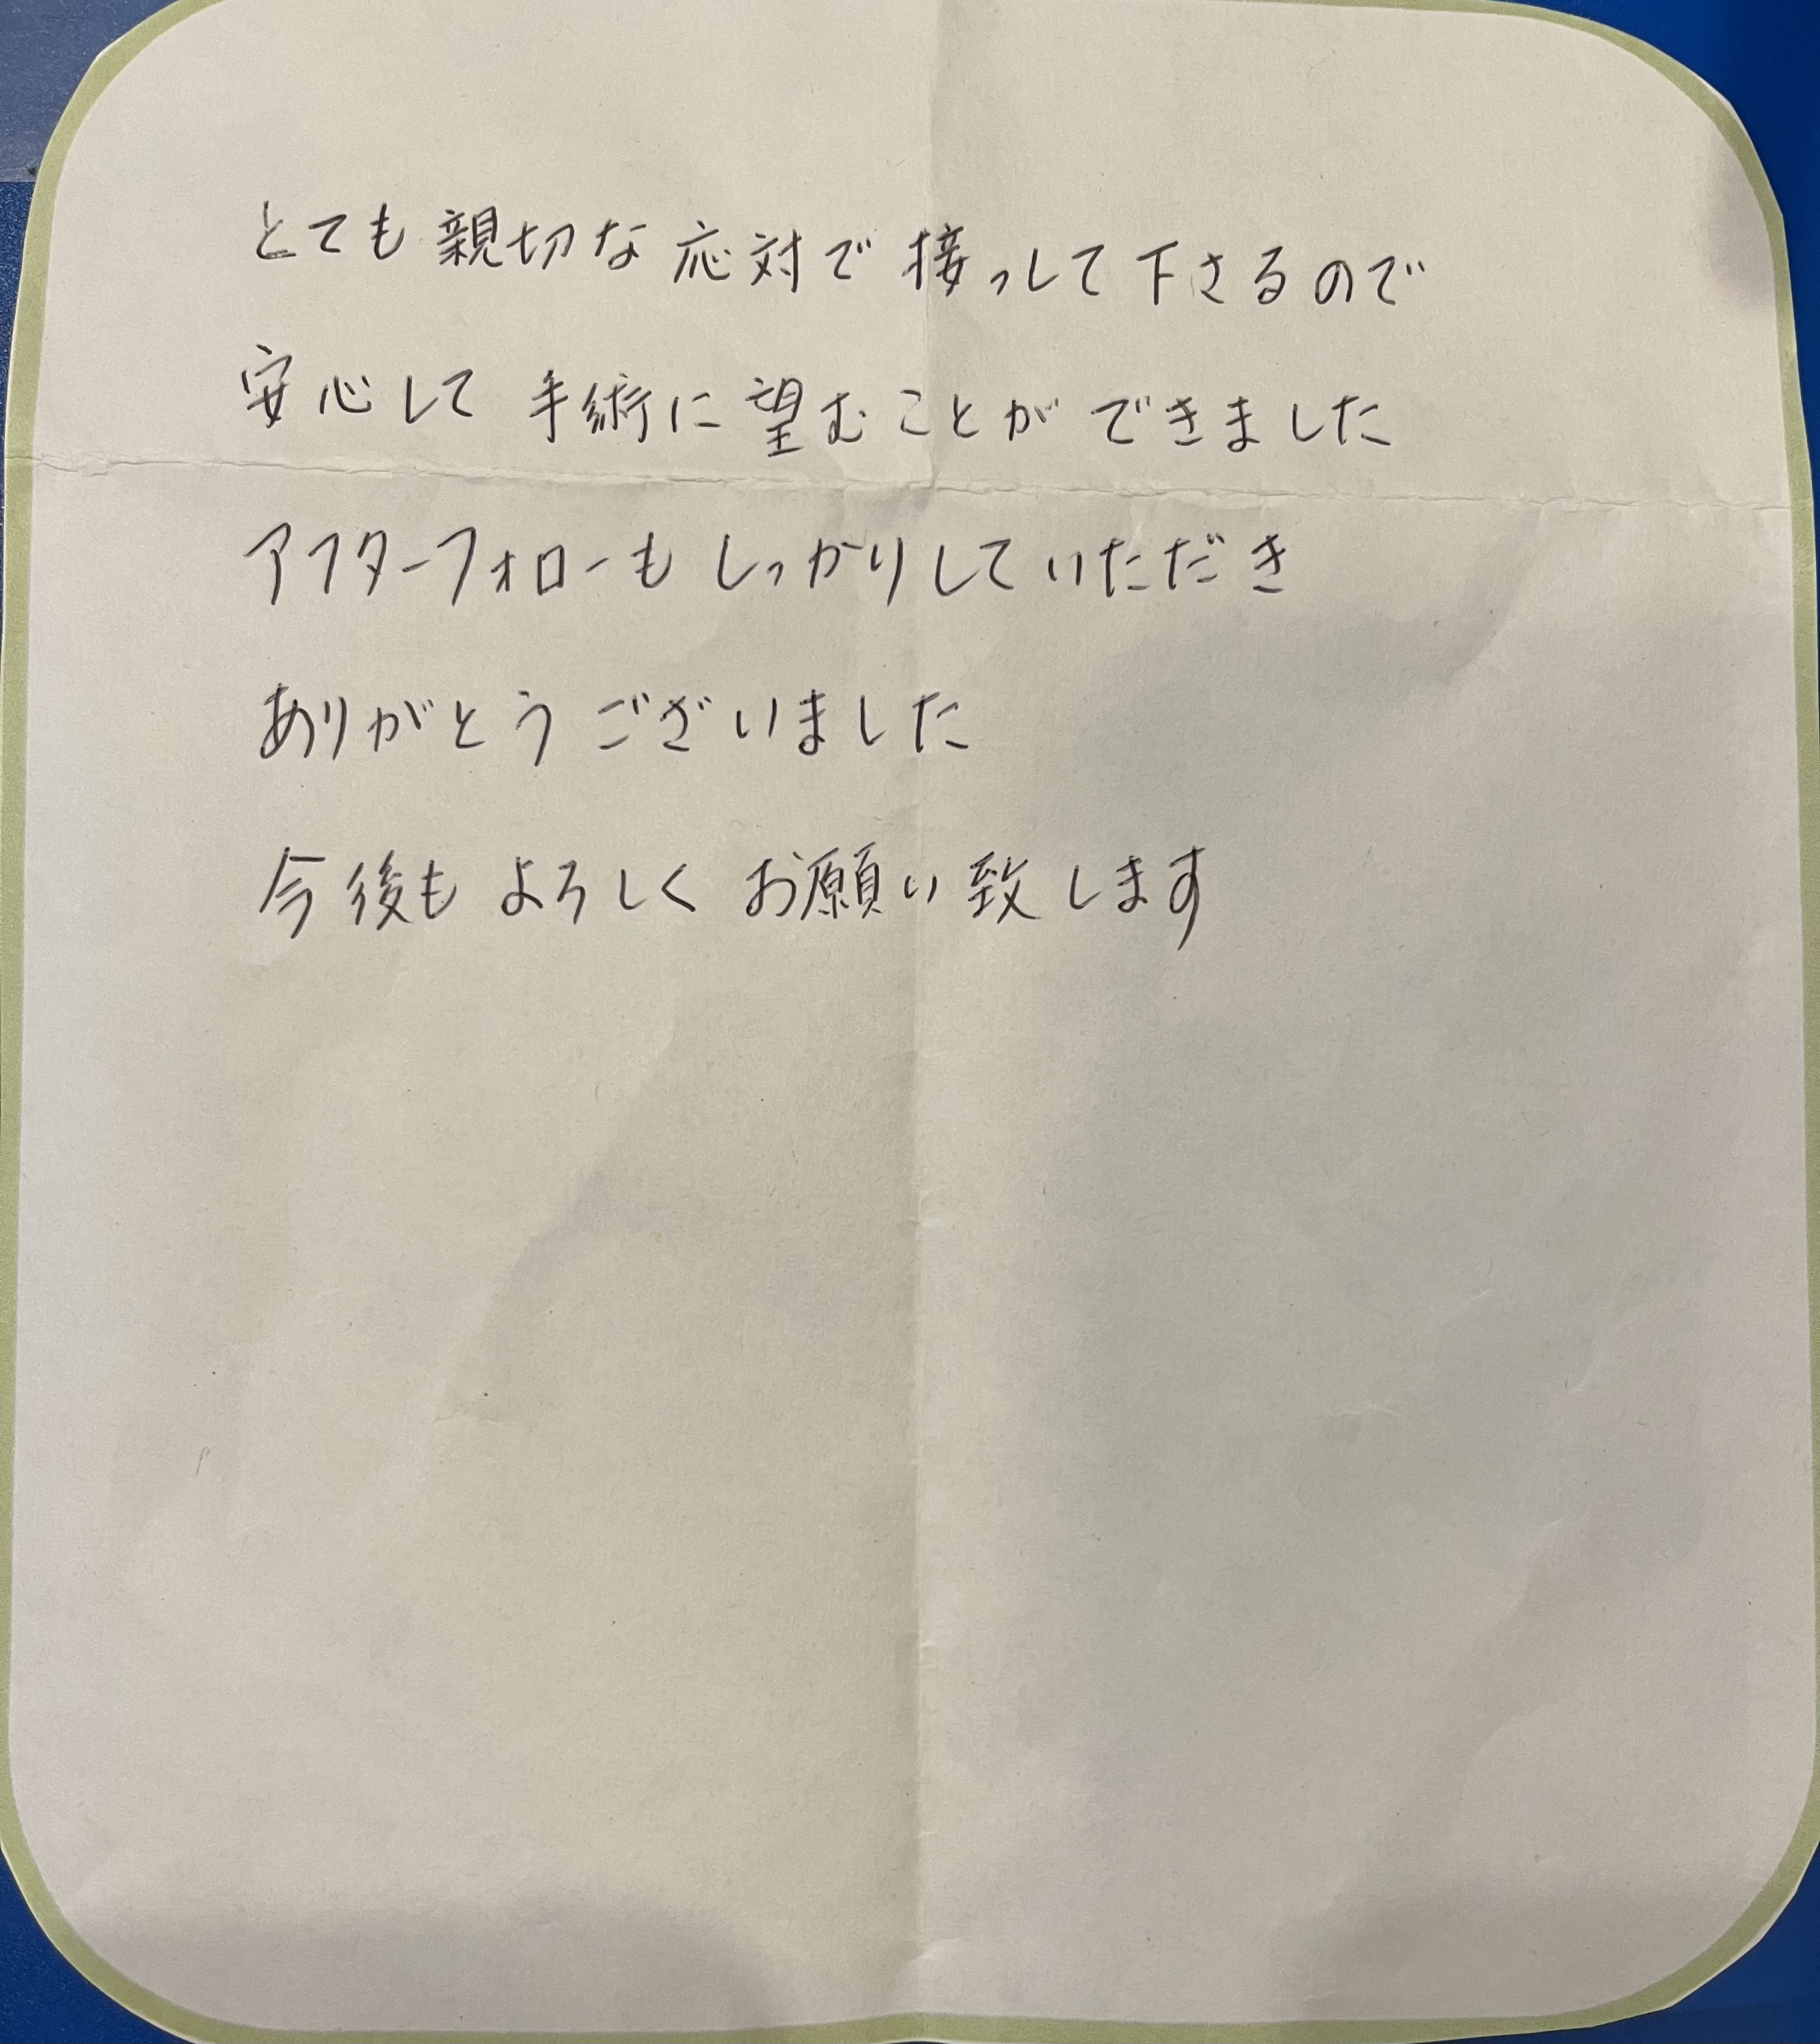 とても親切な応対で接っして下さるので
安心して手術に望むことができました
アフターフォローもしっかりしていただき
ありがとうございました
今後もよろしくお願い致します